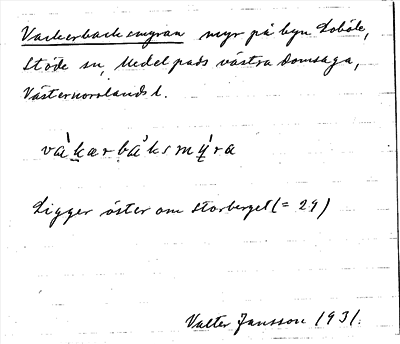 Vackerbacksmyran myr på byn Lobole,
Stöde sn, Medelpads västra domsaga,
Västernorrlands l.
vákærbàksmýra
Ligger öster om Storberget (= 29)
Valter Jansson 1931.